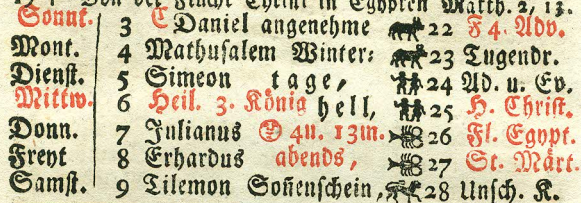 Von der Flucht Christi in Egypten Matth. 2, 13.
Sonnt. 3 C Daniel angenehme 22 F 4. Adv.
Mont. 4 Mathusalem Winter= 23 Tugendr.
Dienst. 5 Simeon tage, 24 Ad. u. Ev.
Mittw. 6 Heil. 3. König hell, 25 H. Christ.
Donn. 7 Julianus 4u. 13m. 26 Fl. Egypt.
Freyt 8 Erhardus abends, 27 St. Märt.
Samst. 9 Tilemon Soñenschein, 28 Unsch. K.